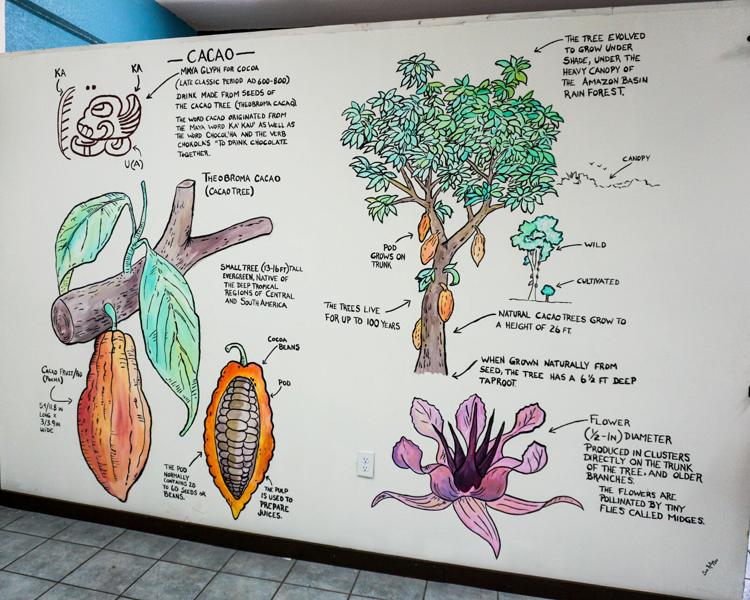 CACAO
KA
KA
U(A)
MAYA GLYPH FOR COCOA
(LATE CLASSIC PERIOD AD 600-800)
DRINK MADE FROM SEEDS OF
THE CACAO TREE (THEOBROMA CACAO)
THE WORD CACAO ORIGINATED FROM
THE MAYA WORD KA'KAU' AS WELL AS
THE WORD CHOCOL'HA AND THE VERB
CHOKOLA'S "TO DRINK CHOCOLATE
TOGETHER.
THEOBROMA CACAO
(CACAO TREE)
SMALL TREE (13-16FT) TALL
EVERGREEN, NATIVE OF
THE DEEP TROPICAL
REGIONS OF CENTRAL
AND SOUTH AMERICA
CACAO FRUIT/POD
LONG X
3/3.9IN
WIDE
COCOA
BEANS
POD
THE POD
NORMALLY
CONTAINS 20
TO 60 SEEDS OR
BEANS.
THE PULP
IS USED TO
PREPARE
JUICES.
THE TREE EVOLVED
TO GROW UNDER
SHADE, UNDER THE
HEAVY CANOPY OF
THE AMAZON BASIN
RAIN FOREST.
CANOPY
WILD
CULTIVATED
POD
GROWS ON
TRUNK
THE TREES LIVE
FOR UP TO 100 YEARS
NATURAL CACAO TREES GROW TO
A HEIGHT OF 26 FT.
WHEN GROWN NATURALLY FROM
SEED, THE TREE HAS A 6 1/2 FT DEEP
TAPROOT.
FLOWER
(1/2-IN) DIAMETER
PRODUCED IN CLUSTERS
DIRECTLY ON THE TRUNK
OF THE TREE, AND OLDER
BRANCHES.
THE FLOWERS ARE
POLLINATED BY TINY
FLIES CALLED MIDGES.